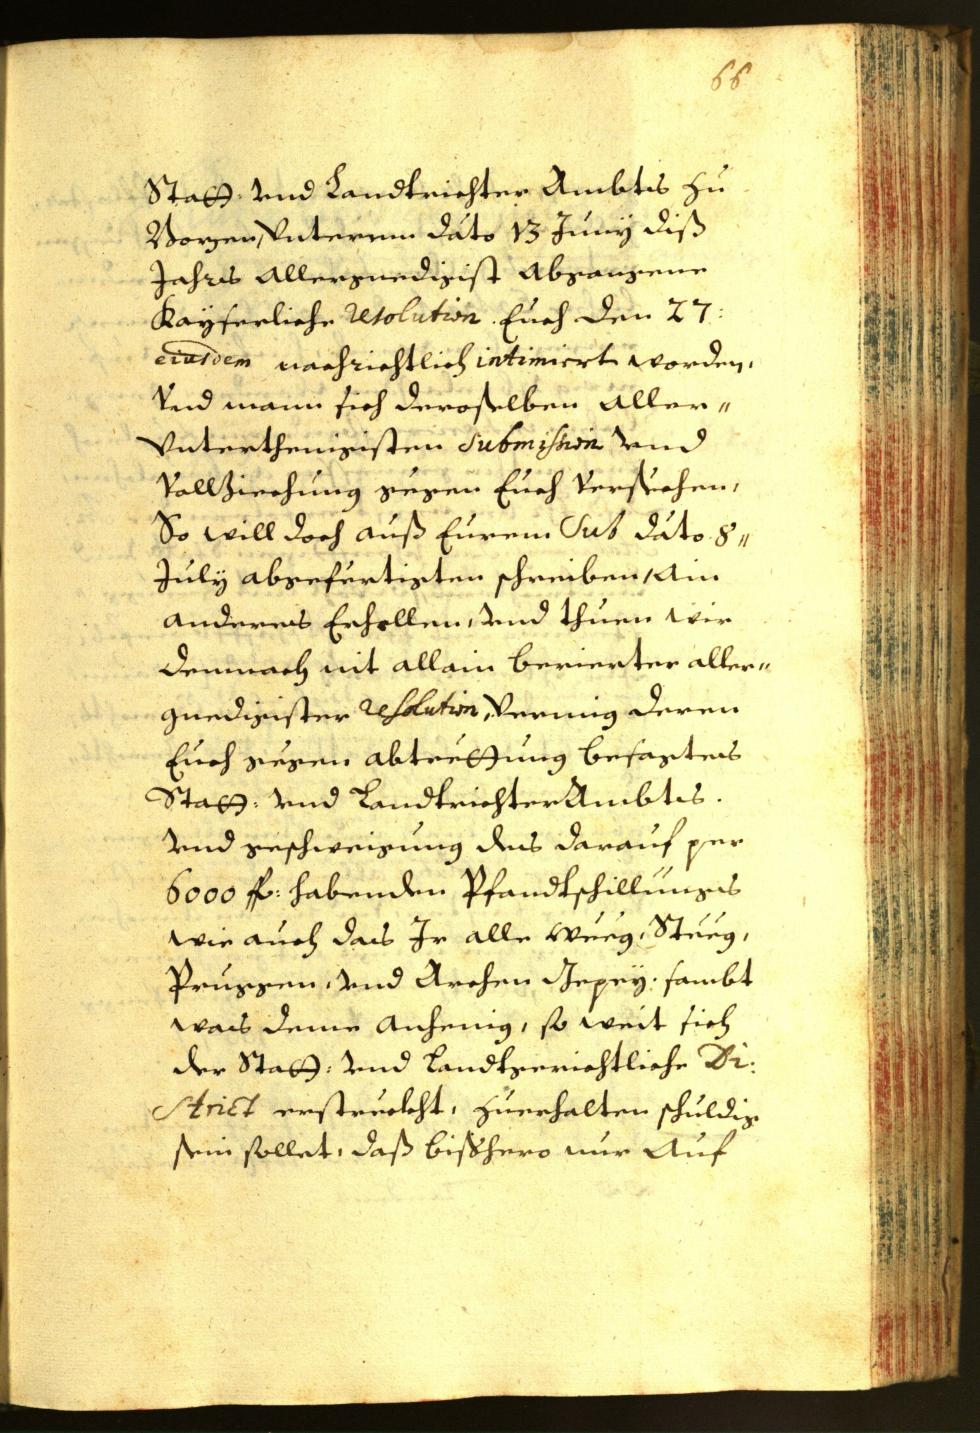 66
Statt: vnd Landtrichter Ambts zu
Bozen, vnterm dato 13 Juny diß
Jahrs allergnedigist abgangene
Kayserliche resolution. Euch den 27:
eiusdem nachrichtlich intimiert worden,
Vnd mann sich deroselben aller"
vnterthenigisten submission vnd
Vollziechung gegen Euch versechen,
So will doch auß Eurem sub dato 8"
July abgefertigten schreiben, ain
anders Erhellen, vnd thuen wir
demnach nit allain berierter aller"
gnedigister resolution, vermig deren
Euch gegen abtrettung besagtes
Statt: vnd LandtrichterAmbts.
vnd geschweigung des darauf per
6000 fl: habenden Pfandtschillungs
wie auch das Ir alle Weeg, Steeg,
Pruggen, vnd Archen Gepey, sambt
was deme anhenig, so weit sich
der Statt: vnd Landtgerichtliche Di:
strict erstreckht, zuerhalten schuldig
sein sollet, daß bißhero nur auf